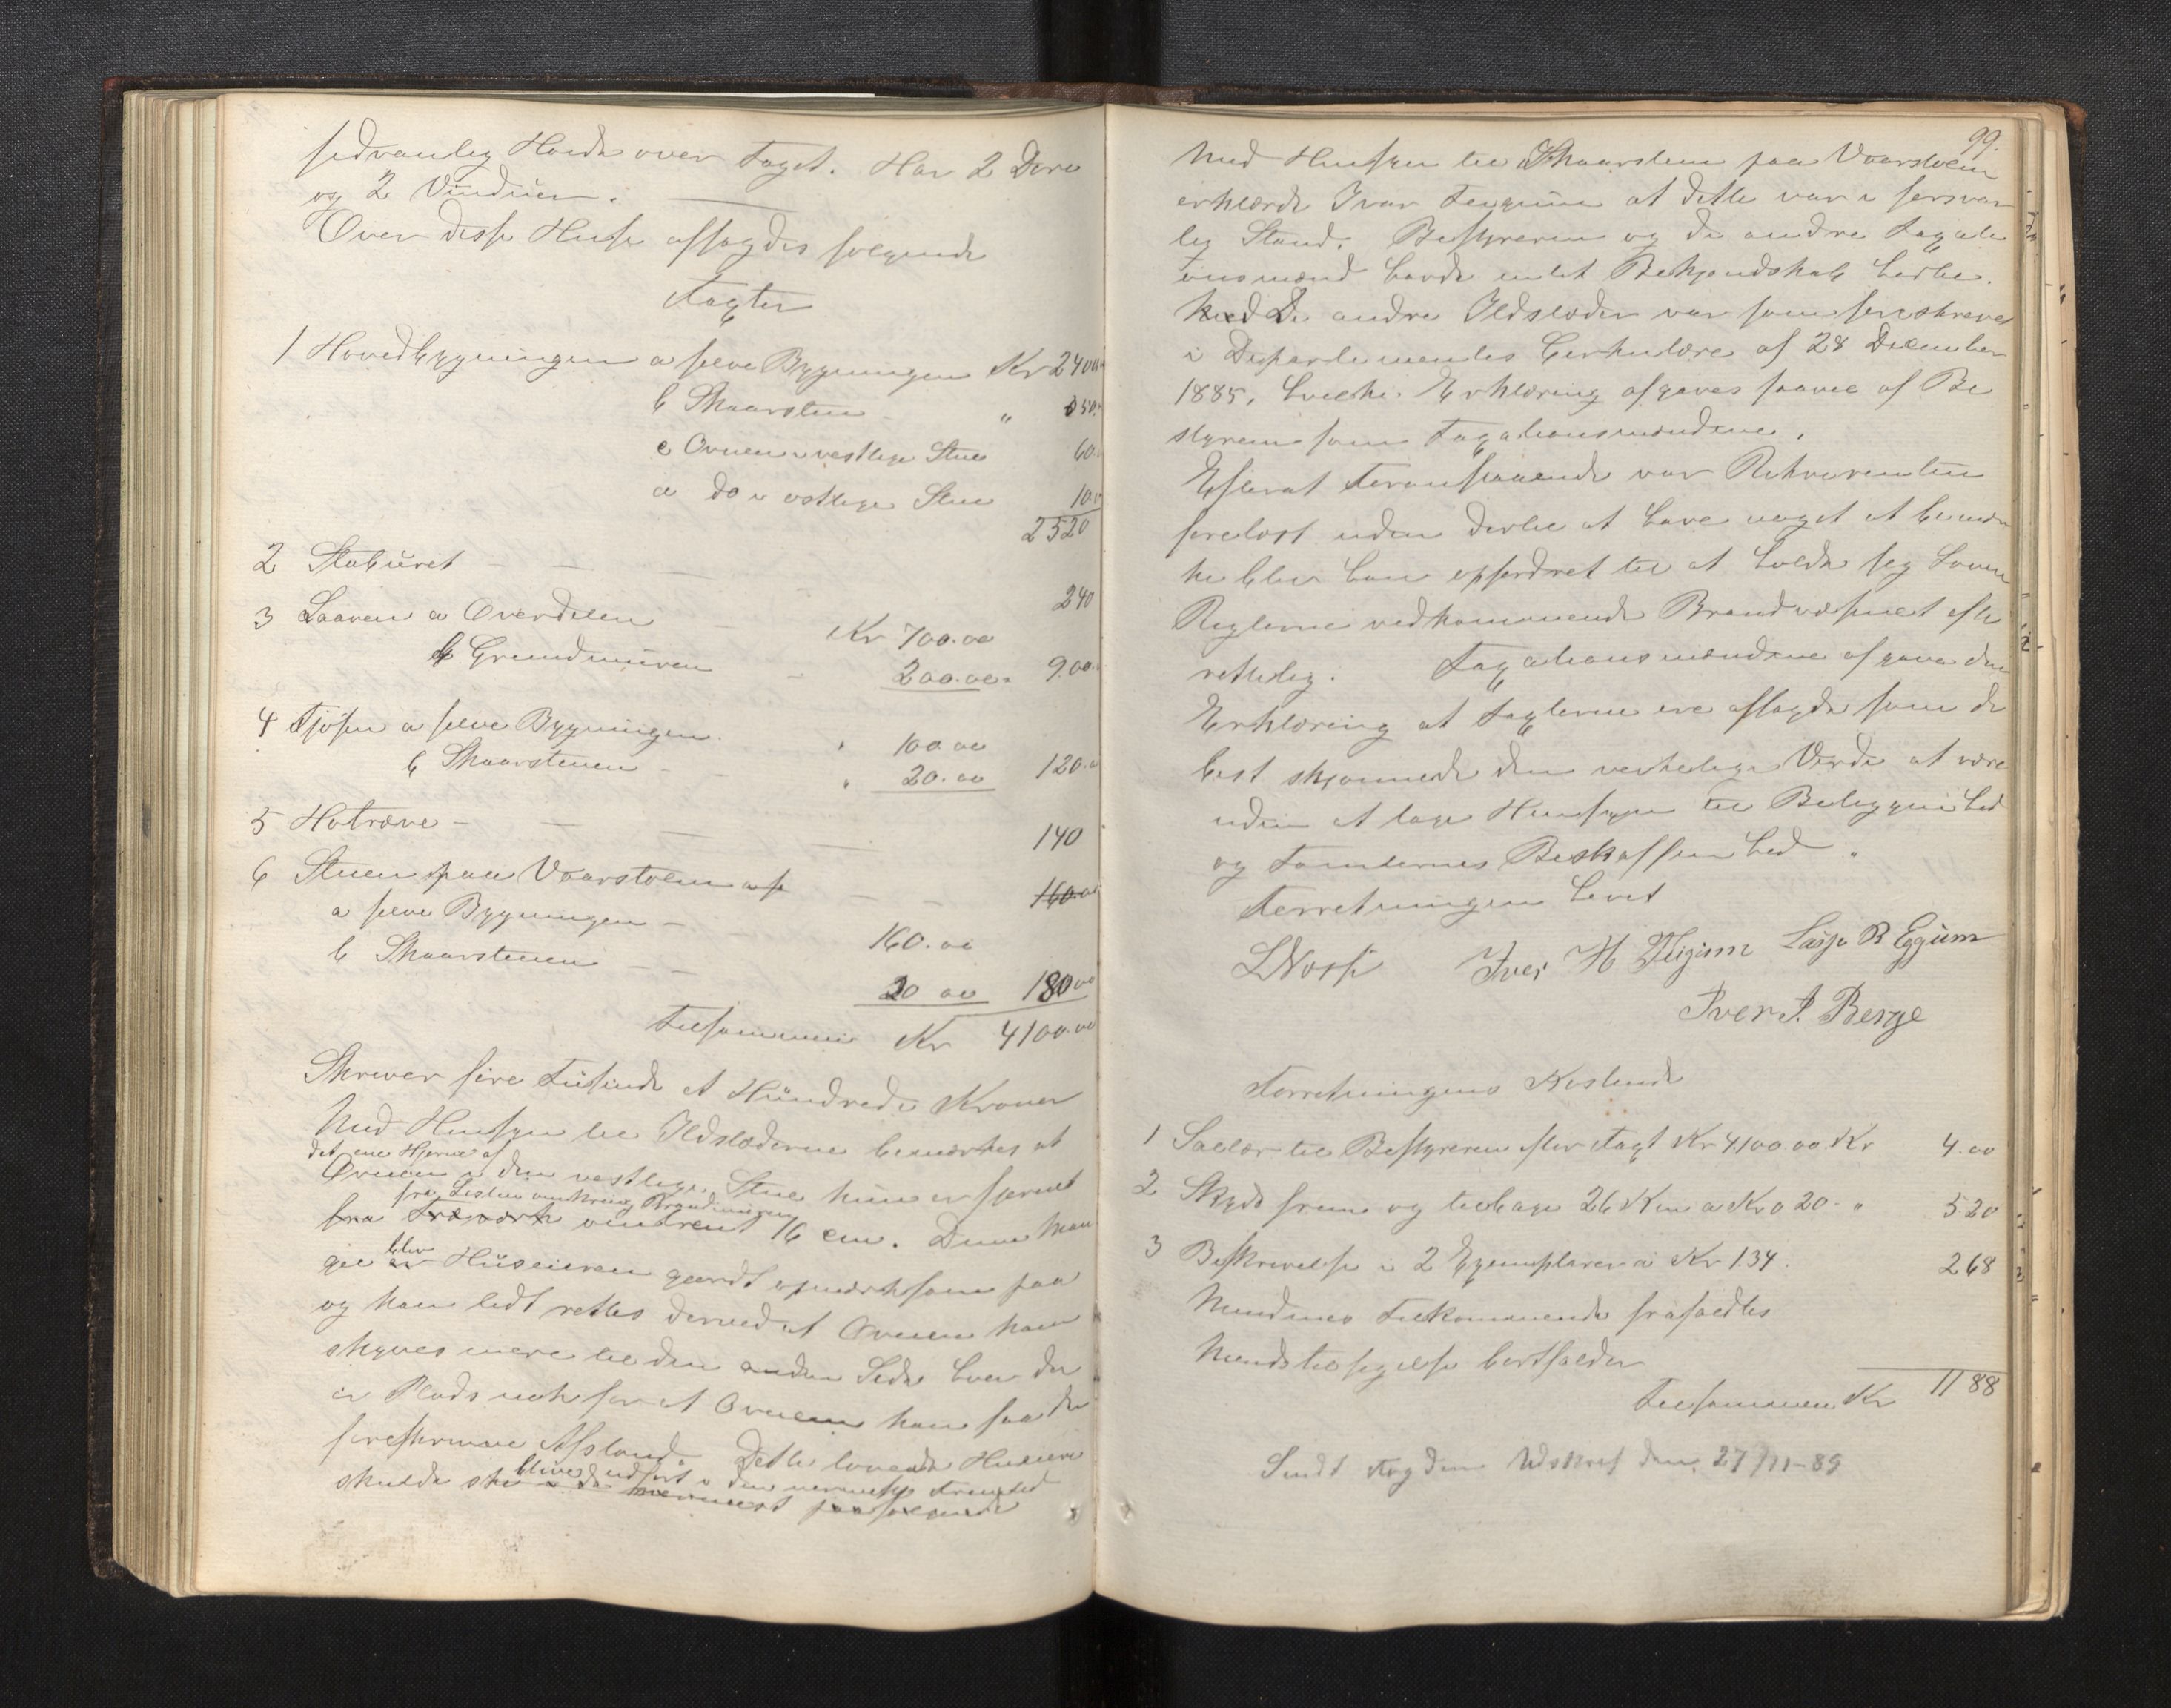 sedvanlig Høide over Taget. Har 2 Døre
og 2 Vinduer.
Over disse Huse afsagdes følgende
Taxter
1 Hovedbygningen a selve Bygningen Kr 2400
b Skaarsten " 50
c Ovnen i vestlige Stue 60
d do i østlige Stue 10
2520
2 Staburet — — — 240
3 Laaven a Overdelen — Kr 700.00
b Grundmuren — 200.00 900.
4 Fjøsen a selve Bygningen " 100.00
b Skaarstenen — — " 20.00 120.
5 Hotræve — — — 140
6 Stuen paa Vaarstølen — — 160.00
a selve Bygningen — 160.00
b Skaarstenen — — 20 00 180 00
Tilsammen Kr 4100.00
Skriver fire Tusinde et Hundrede Kroner
Med Hensyn til Ildstæderne bemærkes at
det ene Hjørne af
Ovnen i den vestlige Stue kun er fjernet
fra Listen omkring Brandmuren
fra Træværk omtrent 16 cm. Denne Man
gel blev Huseieren gjordt opmærksom paa
og kan let rettes derved at Ovnen kan
skyves mere til den anden Side hvor der
er Plads nok for at Ovnen kan faa den
foreskrevne Afstand. Dette lovede Huseieren
blive udført i den nærmeste Fremtid
skulde ske i de nærmest paafølgende
99.
Med Hensyn til Skaarsten paa Vaarstølen
erklærde Ivar at dette var i forsvar
lig Stand. Bestyreren og de andre Taxati
onsmænd havde intet Bekjendskab hertil.
De andre Ildstæder var som foreskrevet
i Departementets Cirkulære af 28 December
1885, hvilken Erklæring afgaves saavel af Be
styreren som Taxationsmændene.
Efterat Foranstaaende var Rekvirenten
forelæst uden dertil at have noget at bemær
ke blev han opfordret til at holde sig Lovens
Reglerne vedkommende Brandvæsenet efter
rettelig. Taxationsmændene afgave den
Erklæring at Taxterne ere afsagde som de
bedst skjønnede den virkelige Verdi at være
uden at tage Hensyn til Beliggenhed
og Tomternes Beskaffenhed.
Forretningen hævet
LVosse Iver H Fligum Lasse B Eggum
Iver I. Berge
Forretningens Kostende
1 Salær til Bestyreren efter Taxt Kr 4100 00 Kr 4.00
2 Skyds frem og tilbage 26 Km a Kr 0 20 - " 5 20
3 Beskrivelse i 2 Exemplarer a Kr 1.34. 2 68
Mændenes Tilkommende frafaldtes
Mændstilsigelse bortfalder
Tilsammen Kr 11 88
Sendt Fogden Udskrift den 27/11-89